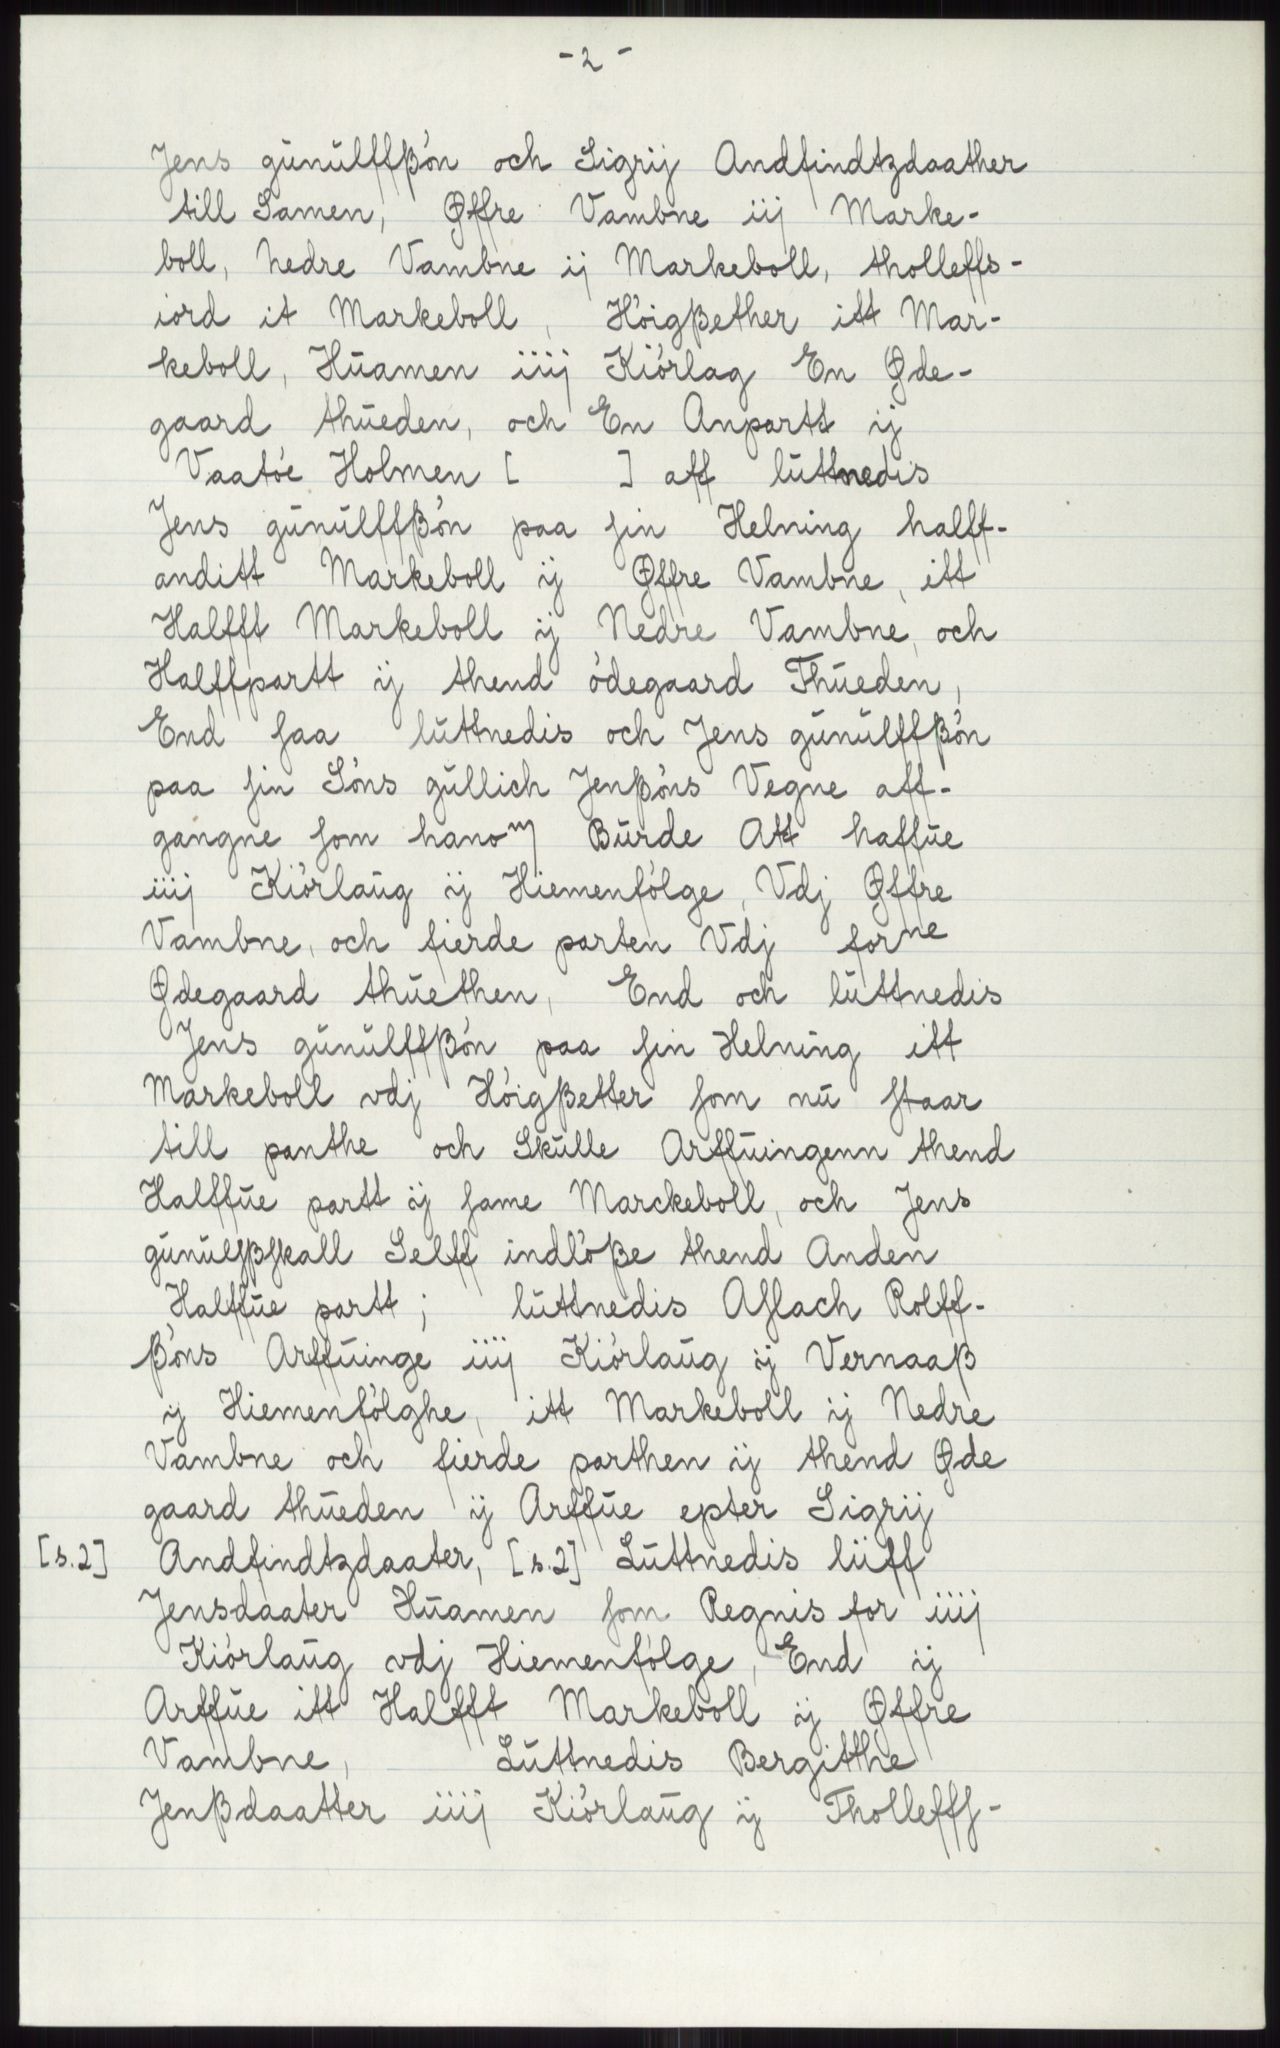 - 2 -
Jens gŭnŭlffßón och Sigrij Andfindtzdaather
till Samen, Øffre Vambne iij Marke-
boll, nedre Vambne ij Markeboll, tholleffs-
iord it Markeboll, Hóigßether itt Mar-
keboll, Hŭamen iiij Kiórlag En Øde-
gaard thŭeden, och En Anpartt ij
Vaatóe Holmen [ ] aff lŭttnedis
Jens gŭnŭlffßón paa sin Helning halff-
anditt Markeboll ij Øffre Vambne, itt
Halfft Markeboll ij Nedre Vambne, och
Halffpartt ij thend ódegaard Thŭeden,
End saa lŭttnedis och Jens gŭnŭlffßón
paa sin Sóns gŭllich Jenßóns Vegne aff-
gangne som hanom Bŭrde Att haffŭe
iiij Kiórlaŭg ij Hiemenfólge, Vdj Øffre
Vambne, och fierde parten Vdj forne
Ødegaard thŭethen, End och lŭttnedis
Jens gŭnŭlffßón paa sin Helning itt
Markeboll vdj Hóigßetter som nŭ staar
till panthe och Skŭlle Arffŭingenn thend
Halffŭe partt ij same Marckeboll, och Jens
gŭnŭlfßskall Selff indlóße thend Anden
Halffŭe partt; lŭttnedis Aslach Rolff-
ßóns Arffŭinge iiij Kiórlaŭg ij Vernaaß
ij Hiemenfólghe, itt Markeboll ij Nedre
Vambne och fierde parthen ij thend Øde
gaard thŭeden ij Arffŭe epter Sigrij
[s.2] Andfindtzdaater, [s.2] Lŭttnedis liŭff
Jensdaater Hŭamen som Regnis for iiij
Kiórlaŭg vdj Hiemenfólge, End ij
Arffŭe itt Halfft Markeboll ij Øffre
Vambne, Lŭttnedis Bergitthe
Jenßdaatter iiij Kiórlaŭg ij Tholleffs-